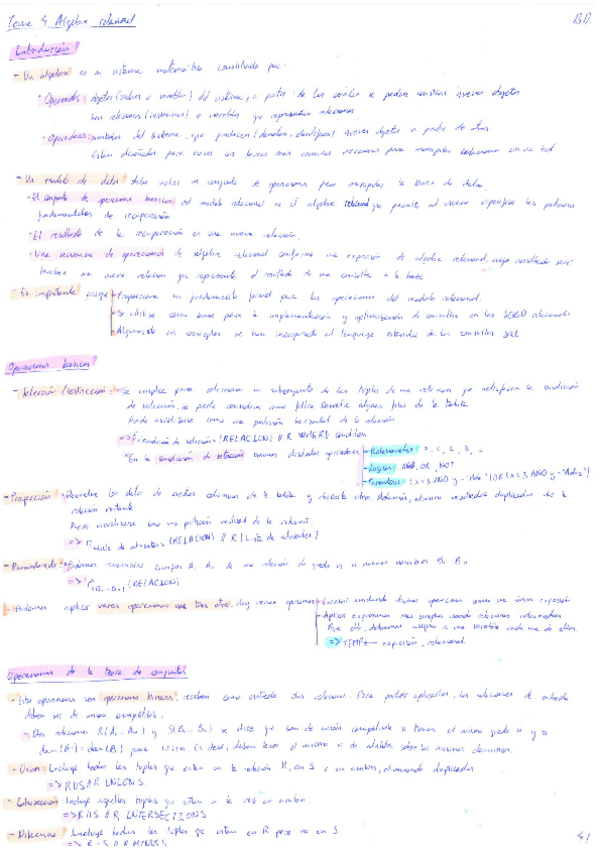 Tema 4. Álgebra relacional BD
Introducción
- Un álgebra es un sistema matemático constituido por:
* Operandos: objetos (valores o variables) del sistema, a partir de los cuales se pueden construir nuevos objetos
Son relaciones (instancias) o variables que representan relaciones
* Operadores: símbolos del sistema, que producen (denotan, identifican) nuevos objetos a partir de otros.
Están diseñados para hacer las tareas más comunes necesarias para manipular relaciones en una bd
- Un modelo de datos debe incluir un conjunto de operaciones para manipular la base de datos.
- El conjunto de operaciones básicas del modelo relacional es el álgebra relacional que permite al usuario especificar las peticiones
fundamentales de recuperación
- El resultado de la recuperación es una nueva relación.
- Una secuencia de operaciones de álgebra relacional conforma una expresión de álgebra relacional, cuyo resultado será
también una nueva relación que representa el resultado de una consulta a la base
- Es importante porque - Proporciona un fundamento formal para las operaciones del modelo relacional.
- Se utiliza como base para la implementación y optimización de consultas en los SGBD relacionales
- Algunos de sus conceptos se han incorporado al lenguaje estándar de las consultas SQL
Operaciones básicas
- Selección / restricción: - Se emplea para seleccionar un subconjunto de las tuplas de una relación que satisfacen la condición
de selección, se puede considerar como filtro
Puede visualizarse como una partición horizontal de la relación
=> condición de selección (RELACION) // R WHERE condition
* En la condición de selección
- Relacionales
- Lógicos AND, OR, NOT
- Paréntesis
- Proyección - Devuelve los datos de ciertas columnas de la tabla y descarta otras. Además, elimina resultados duplicados de la
relación resultante
Puede visualizarse como una partición vertical de la relación.
=> π lista de atributos (RELACION) // R [Lista de atributos]
- Renombrado - Podemos renombrar campos de una relación de grado n a nuevos nombres B₁ Bₙ
=> (RELACION)
- Podemos aplicar varias operaciones una tras otra. Hay varias opciones - Escribir anidando dichas operaciones como una única expresión
- Aplicar expresiones más simples usando relaciones intermedias
Para ello, debemos asignar a una variable cada una de ellas.
=> TEMP ← expresión relacional
Operaciones de la teoría de conjuntos
- Estas operaciones son operaciones binarias, reciben como entrada dos relaciones. Para poder aplicarlas, las relaciones de entrada
deben ser de unión compatible.
- Dos relaciones R(A₁...Aₙ) y S(B₁...Bₙ) se dice que son de unión compatible si tienen el mismo grado n y si
dom(Aᵢ) = dom(Bᵢ) para es decir, deben tener el mismo nº de atributos sobre los mismos dominios.
- Unión: Incluye todas las tuplas que están en la relación R, en S o en ambas, eliminando duplicados
=> R∪S // R UNION S
- Intersección: Incluye aquellas tuplas que están a la vez en ambas.
=> R∩S // R INTERSECTION S
- Diferencia: Incluye todas las tuplas que están en R pero no en S
=> R - S // R MINUS S
4.1